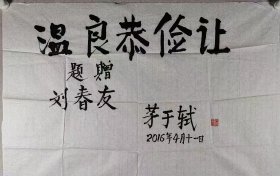 温良恭俭让
题赠
刘春友
茅于轼
2016年4月十一日